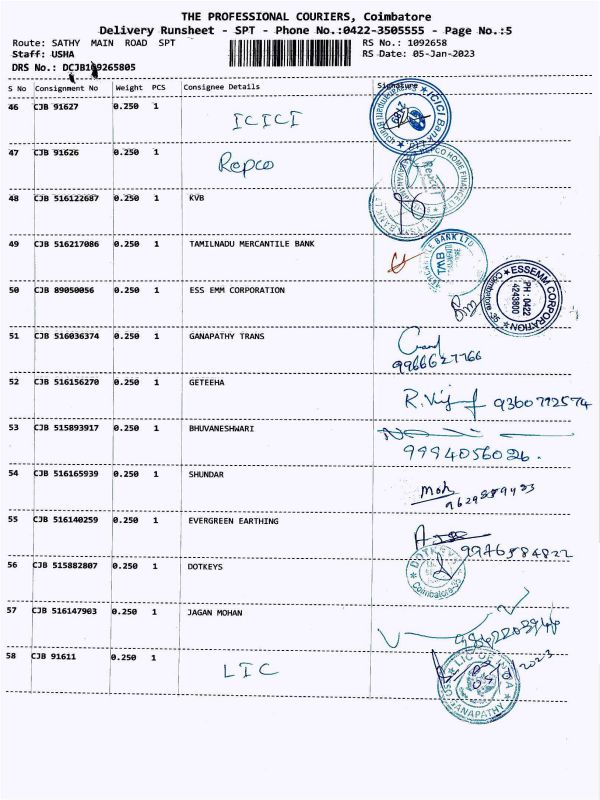 THE PROFESSIONAL COURIERS, Coimbatore
Delivery Runsheet - SPT - Phone No.:0422-3505555 - Page No.:5
Route: SATHY MAIN ROAD SPT RS No.: 1092658
Staff: USHA RS Date: 05-Jan-2023
DRS No.: DCJB109265805
S No Consignment No Weight PCS Consignee Details Signature
46 CJB 91627 0.250 1 ICICI
ICICI Bank
47 CJB 91626 0.250 1 Repco
REPCO HOME FINANCE
48 CJB 516122687 0.250 1 KVB
49 CJB 516217086 0.250 1 TAMILNADU MERCANTILE BANK
MERCANTILE BANK LTD
TMB
50 CJB 89050056 0.250 1 ESS EMM CORPORATION
ESSEMM CORPORATION
PH : 0422
4243800
Coimbatore-35
51 CJB 516036374 0.250 1 GANAPATHY TRANS
9966627766
52 CJB 516156270 0.250 1 GETEEHA
R. 9360772574
53 CJB 515893917 0.250 1 BHUVANESHWARI
9994056026.
54 CJB 516165939 0.250 1 SHUNDAR
Moh
55 CJB 516140259 0.250 1 EVERGREEN EARTHING
9976584822
56 CJB 515882807 0.250 1 DOTKEYS
DOTKEYS
Coimbatore-35
57 CJB 516147903 0.250 1 JAGAN MOHAN
58 CJB 91611 0.250 1 LIC
LIC OF INDIA
GANAPATHY